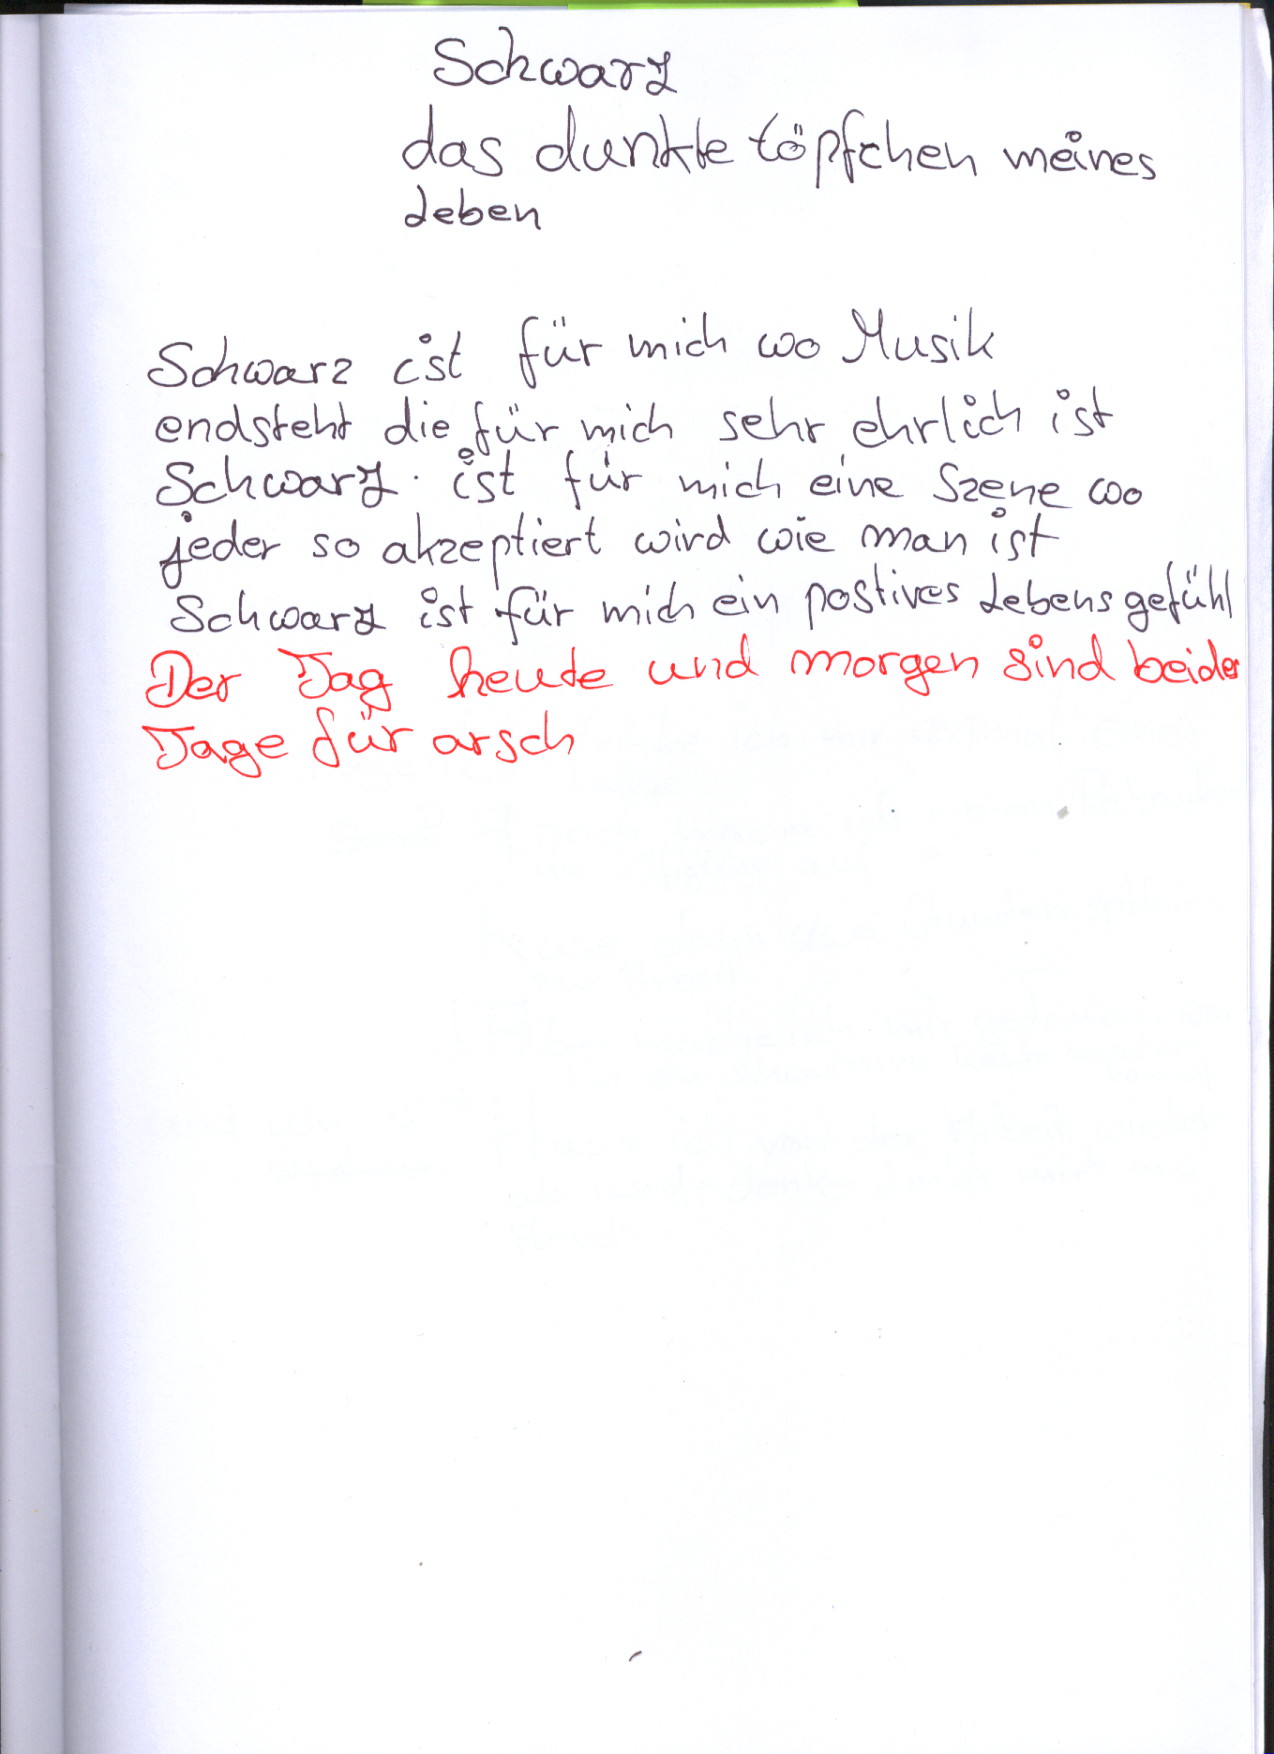 Schwarz
das dunkle töpfchen meines
Leben
Schwarz ist für mich wo Musik
endsteht die für mich sehr ehrlich ist
Schwarz ist für mich eine Szene wo
jeder so akzeptiert wird wie man ist
Schwarz ist für mich ein postives Lebensgefühl
Der Tag heute und morgen sind beider
Tage für arsch